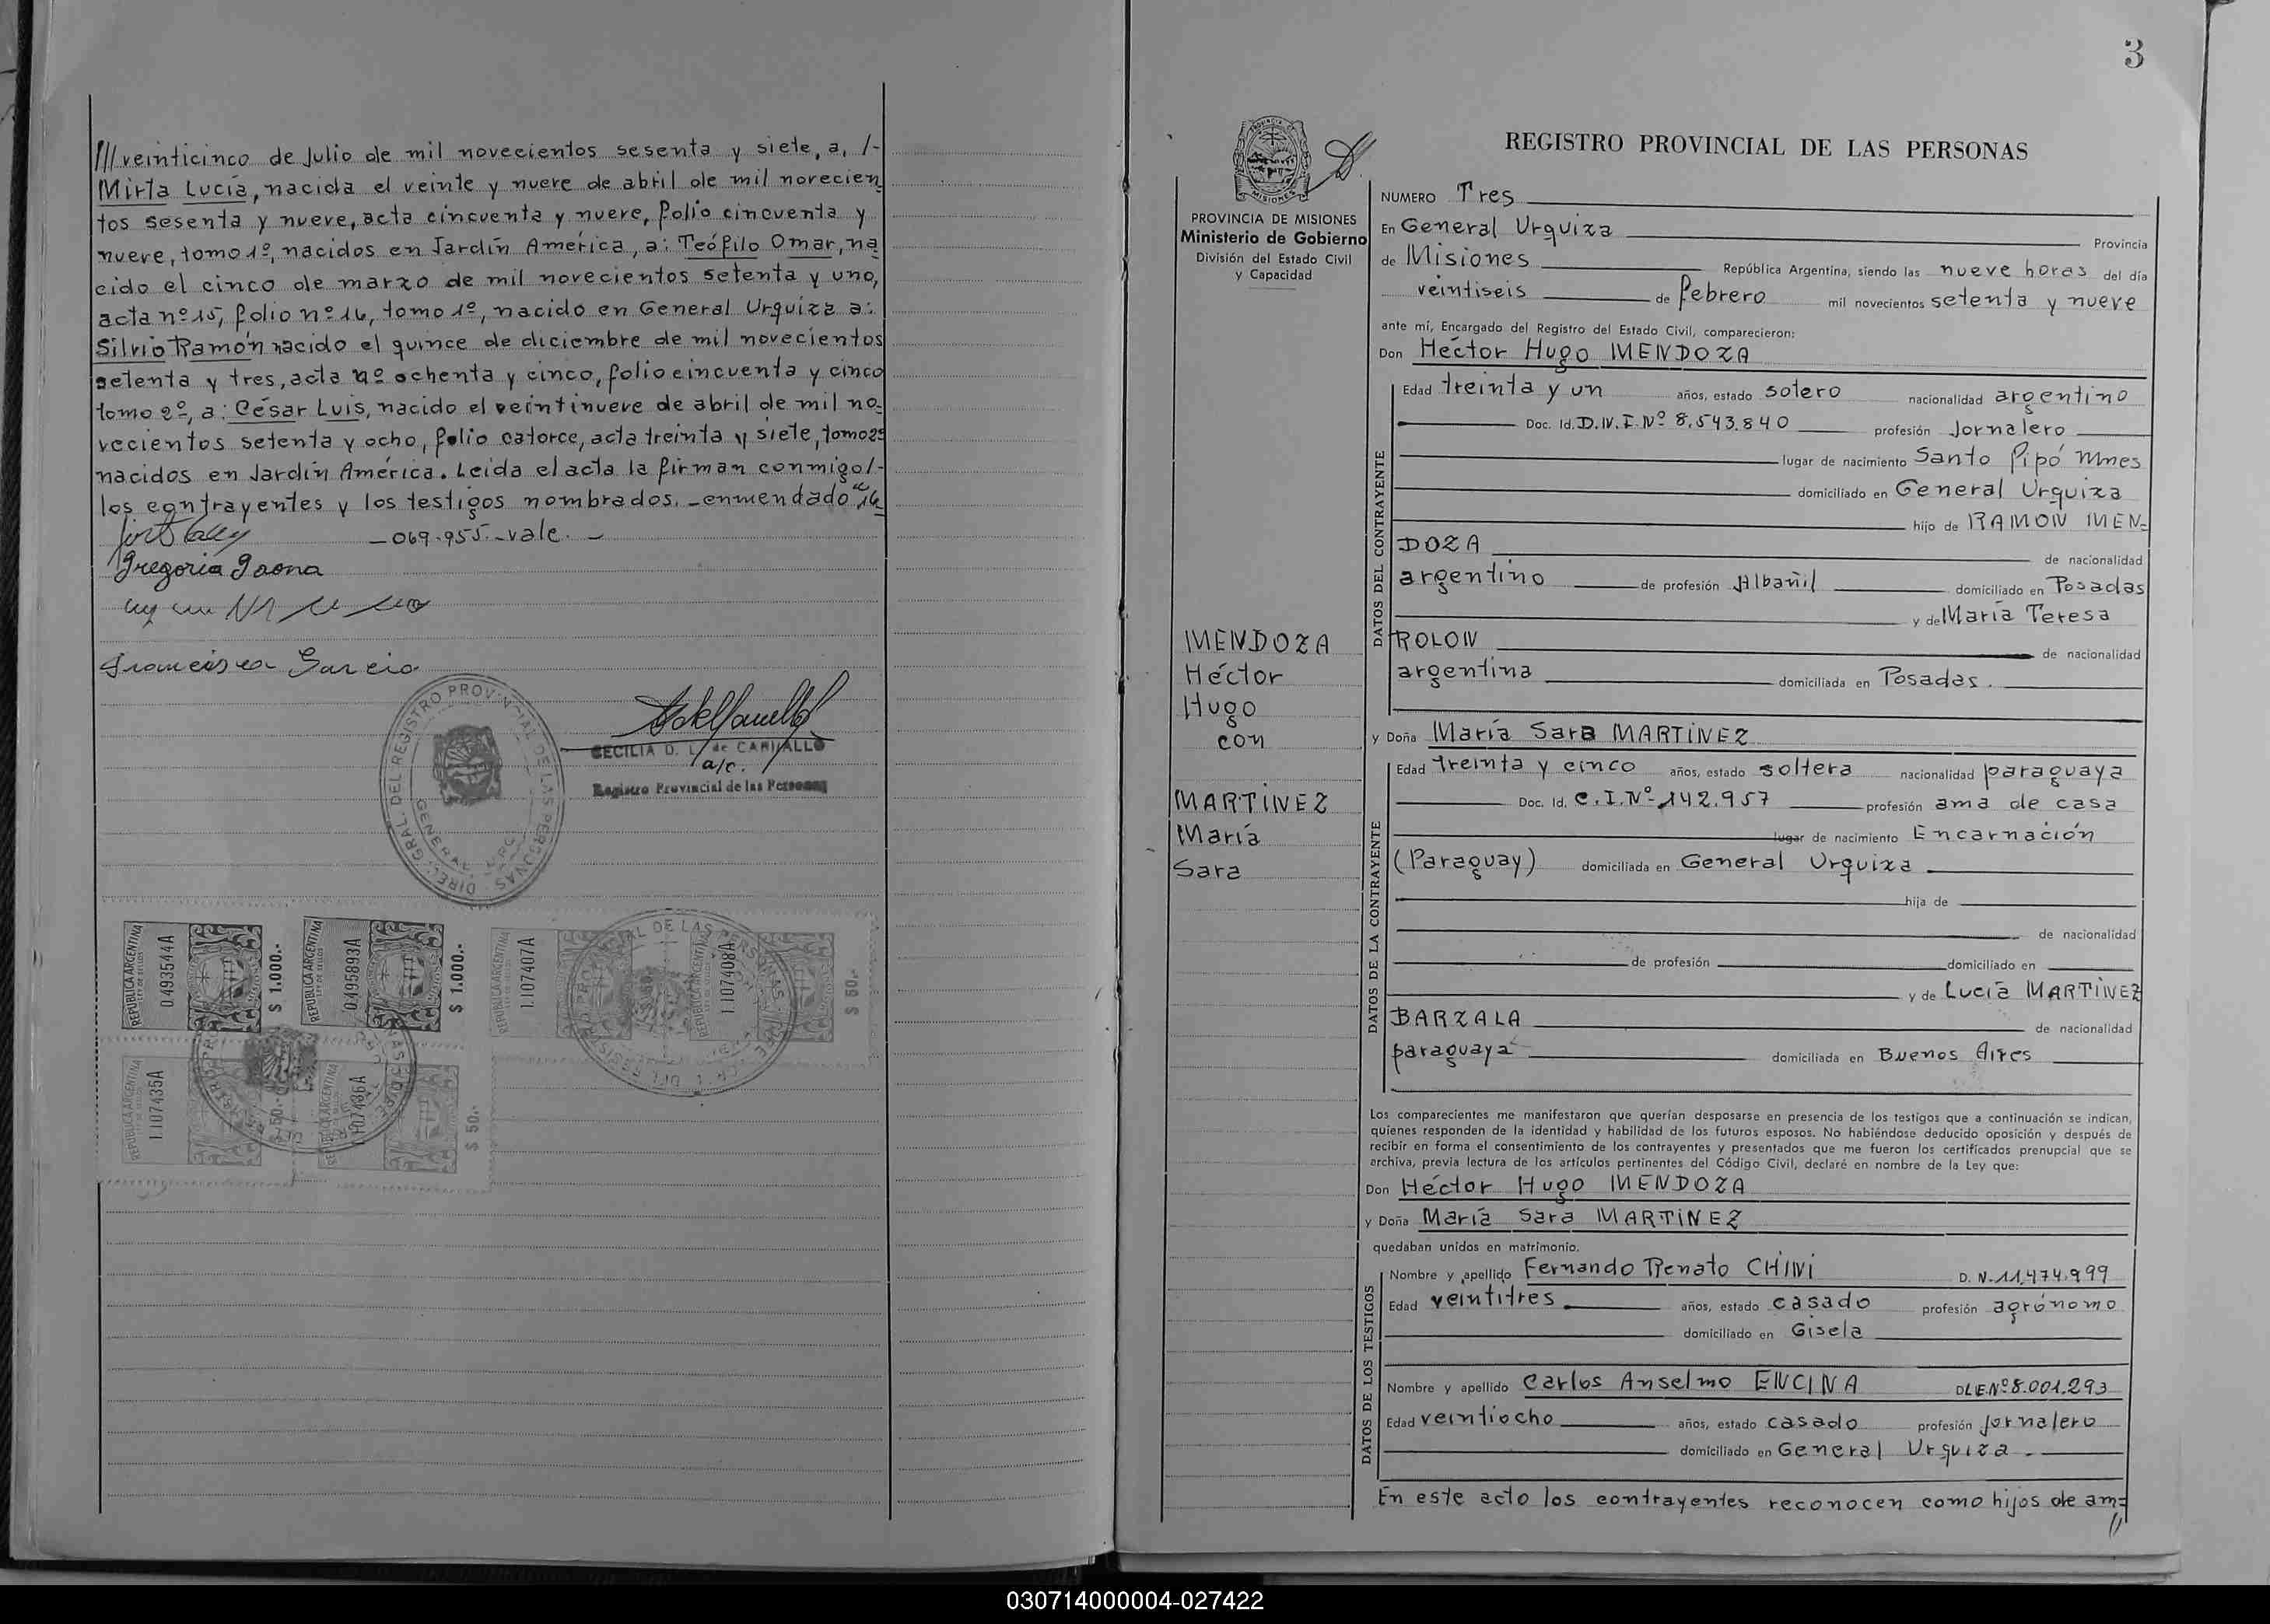 ///veinticinco de Julio de mil novecientos sesenta y siete, a, /-
Mirta Lucía, nacida el veinte y nueve de abril de mil novecien
tos sesenta y nueve, acta cincuenta y nueve, folio cincuenta y
nueve, tomo 1º, nacidos en Jardín América, a: Teófilo Omar, na
cido el cinco de marzo de mil novecientos setenta y uno,
acta nº 15, folio nº 16, tomo 1º, nacido en General Urquiza a:
Silvio Ramón nacido el quince de diciembre de mil novecientos
setenta y tres, acta nº ochenta y cinco, folio cincuenta y cinco
tomo 2º, a: César Luis, nacido el veintinueve de abril de mil no-
vecientos setenta y ocho, folio catorce, acta treinta y siete, tomo 2º
nacidos en Jardín América. Leida el acta la firman conmigo/-
los contrayentes y los testigos nombrados. - enmendado "16
- 069.955.- vale. -
Gregoria Gaona
Francisca Garcia
DIREC. GRAL. DEL REGISTRO PROVINCIAL DE LAS PERSONAS
CECILIA D. L. de CARVALLO
a/c.
Registro Provincial de las Personas
REPUBLICA ARGENTINA
0.493544A
$ 1.000.-
REPUBLICA ARGENTINA
0.495893A
$ 1.000.-
REPUBLICA ARGENTINA
1.107407A
REPUBLICA ARGENTINA
1.107408A
$ 50.-
REPUBLICA ARGENTINA
1.107435A
$ 50.-
REPUBLICA ARGENTINA
1.107436A
$ 50.-
3
PROVINCIA DE MISIONES
Ministerio de Gobierno
División del Estado Civil
y Capacidad
MENDOZA
Héctor
Hugo
con
MARTINEZ
María
Sara
REGISTRO PROVINCIAL DE LAS PERSONAS
NUMERO Tres
En General Urquiza Provincia
de Misiones República Argentina, siendo las nueve horas del día
veintiseis de febrero mil novecientos setenta y nueve
ante mí, Encargado del Registro del Estado Civil, comparecieron:
Don Héctor Hugo MENDOZA
DATOS DEL CONTRAYENTE
Edad treinta y un años, estado soltero nacionalidad argentino
Doc. Id. D.N.I. Nº 8.543.840 profesión Jornalero
lugar de nacimiento Santo Pipó Mnes
domiciliado en General Urquiza
hijo de RAMON MEN-
DOZA de nacionalidad
argentino de profesión Albañil domiciliado en Posadas
y de María Teresa
ROLON de nacionalidad
argentina domiciliada en Posadas.
y Doña María Sara MARTINEZ
DATOS DE LA CONTRAYENTE
Edad treinta y cinco años, estado soltera nacionalidad paraguaya
Doc. Id. C.I. Nº 142.957 profesión ama de casa
lugar de nacimiento Encarnación
(Paraguay) domiciliada en General Urquiza
hija de
de nacionalidad
de profesión domiciliado en
y de Lucía MARTINEZ
BARZALA de nacionalidad
paraguaya domiciliada en Buenos Aires
Los comparecientes me manifestaron que querían desposarse en presencia de los testigos que a continuación se indican,
quienes responden de la identidad y habilidad de los futuros esposos. No habiéndose deducido oposición y después de
recibir en forma el consentimiento de los contrayentes y presentados que me fueron los certificados prenupcial que se
archiva, previa lectura de los artículos pertinentes del Código Civil, declaré en nombre de la Ley que:
Don Héctor Hugo MENDOZA
y Doña María Sara MARTINEZ
quedaban unidos en matrimonio.
DATOS DE LOS TESTIGOS
Nombre y apellido Fernando Renato CHINI D. N. 11.474.999
Edad veintitres años, estado casado profesión agrónomo
domiciliado en Gisela
Nombre y apellido Carlos Anselmo ENCINA DLE.Nº 8.001.293
Edad veintiocho años, estado casado profesión Jornalero
domiciliado en General Urquiza.
En este acto los contrayentes reconocen como hijos de am=
030714000004-027422